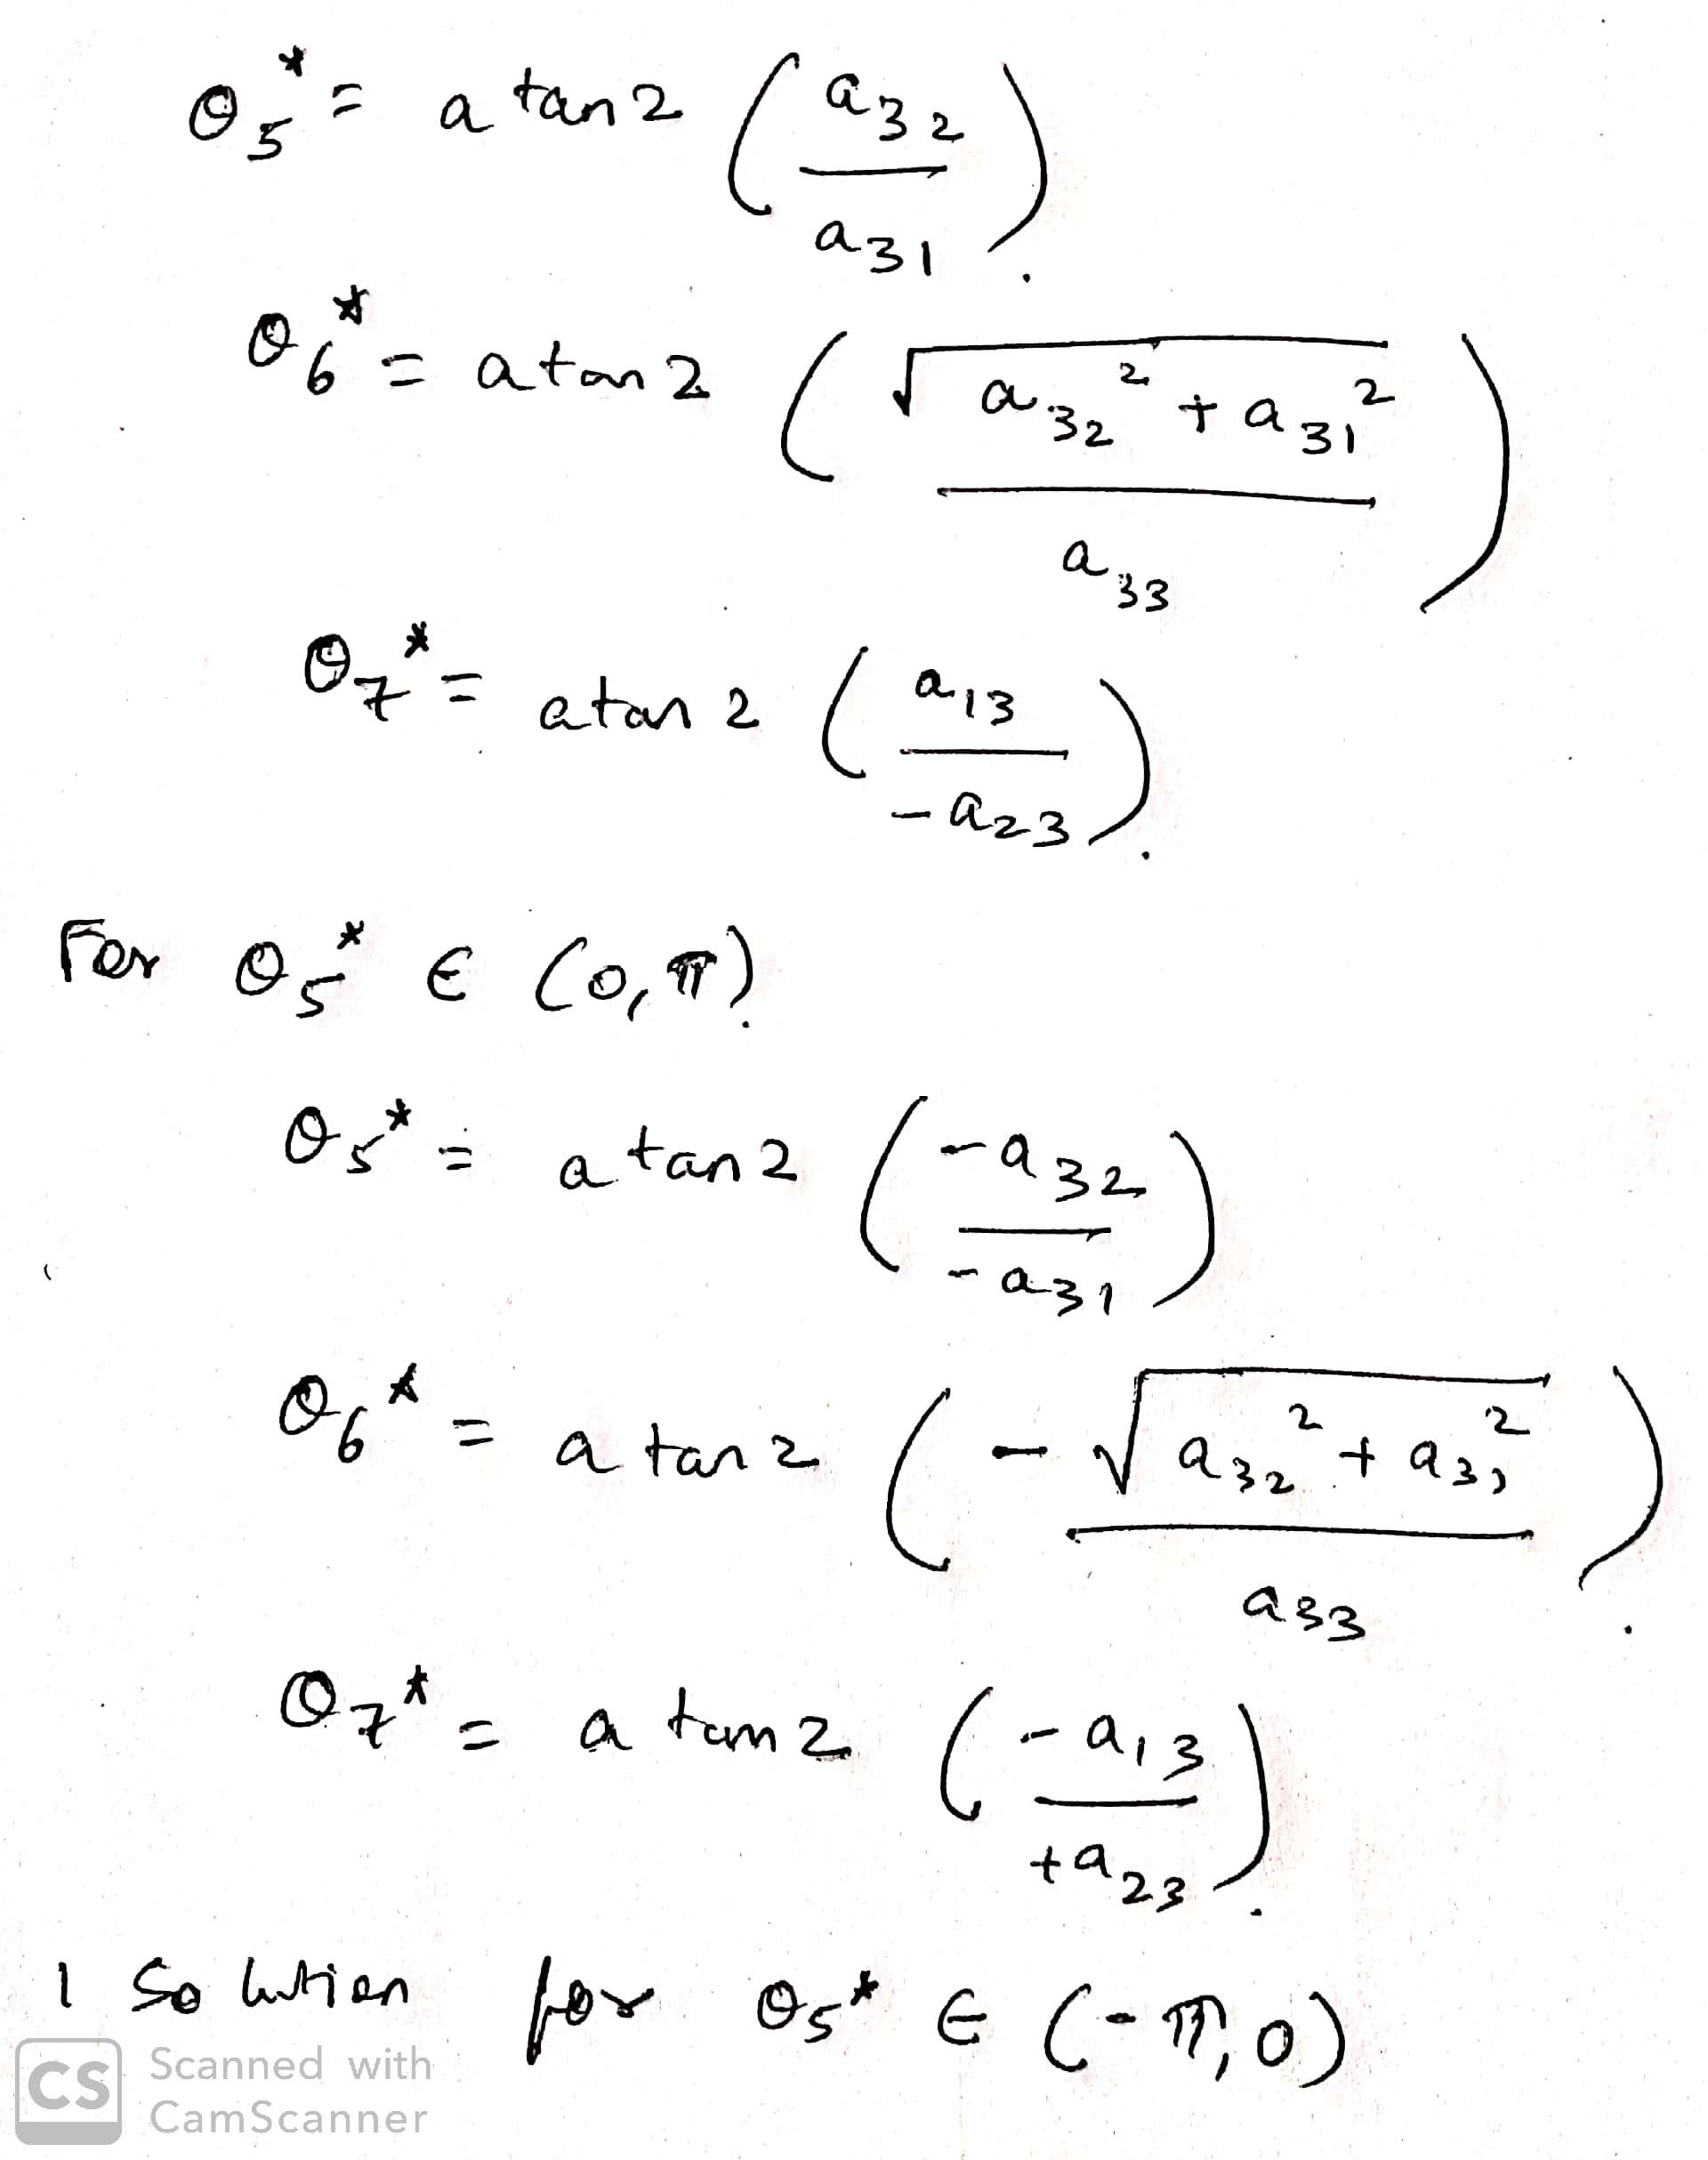 θ₅* = a tan 2 (a₃₂ / a₃₁).
θ₆* = a tan 2 (√(a₃₂² + a₃₁²) / a₃₃)
θ₇* = a tan 2 (a₁₃ / -a₂₃).
For θ₅* ∈ (0, π).
θ₅* = a tan 2 (-a₃₂ / -a₃₁)
θ₆* = a tan 2 (-√(a₃₂² + a₃₁²) / a₃₃).
θ₇* = a tan 2 (-a₁₃ / +a₂₃).
1 Solution for θ₅* ∈ (-π, 0)
CS Scanned with
CamScanner